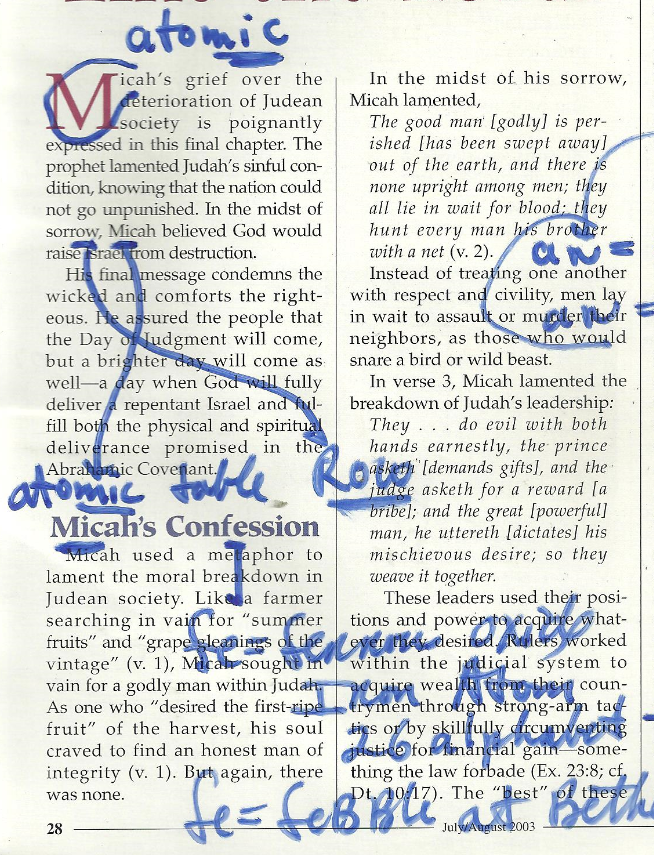 atomic
Micah's grief over the
deterioration of Judean
society is poignantly
expressed in this final chapter. The
prophet lamented Judah's sinful con-
dition, knowing that the nation could
not go unpunished. In the midst of
sorrow, Micah believed God would
raise Israel from destruction.
His final message condemns the
wicked and comforts the right-
eous. He assured the people that
the Day of Judgment will come,
but a brighter day will come as
well—a day when God will fully
deliver a repentant Israel and ful-
fill both the physical and spiritual
deliverance promised in the
Abrahamic Covenant.
atomic table Row
Micah's Confession
Micah used a metaphor to
lament the moral breakdown in
Judean society. Like a farmer
searching in vain for "summer
fruits" and "grape gleanings of the
vintage" (v. 1), Micah sought in
vain for a godly man within Judah.
As one who "desired the first-ripe
fruit" of the harvest, his soul
craved to find an honest man of
integrity (v. 1). But again, there
was none.
In the midst of his sorrow,
Micah lamented,
The good man [godly] is per-
ished [has been swept away]
out of the earth, and there is
none upright among men; they
all lie in wait for blood; they
hunt every man his brother
with a net (v. 2).
an =
Instead of treating one another
with respect and civility, men lay
in wait to assault or murder their
an =
neighbors, as those who would
snare a bird or wild beast.
In verse 3, Micah lamented the
breakdown of Judah's leadership:
They . . . do evil with both
hands earnestly, the prince
asketh [demands gifts], and the
judge asketh for a reward [a
bribe]; and the great [powerful]
man, he uttereth [dictates] his
mischievous desire; so they
weave it together.
These leaders used their posi-
tions and power to acquire what-
ever they desired. Rulers worked
within the judicial system to
acquire wealth from their coun-
trymen through strong-arm tac-
tics or by skillfully circumventing
justice for financial gain—some-
thing the law forbade (Ex. 23:8; cf.
Dt. 10:17). The "best" of these
fe =
26 alphabet
fe = feBBle at Beth
28
July/August 2003